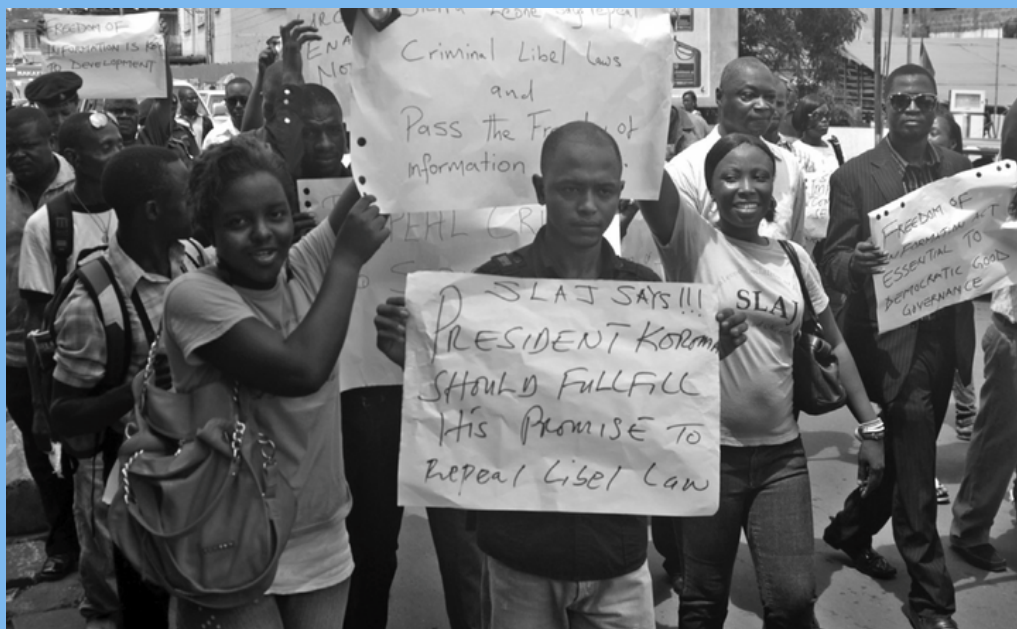 FREEDOM OF
INFORMATION IS KEY
TO DEVELOPMENT
ENA
NOT
Sierra Leone Say repeal
Criminal Libel Laws
and
Pass the Freedom of
information
REPEAL CRI
SLAJ SAYS!!!
PRESIDENT KOROMA
SHOULD FULLFILL
HIS PROMISE TO
Repeal Libel Law
SLAJ
FREEDOM OF
INFORMATION ACT
ESSENTIAL TO
DEMOCRATIC GOOD
GOVERNANCE